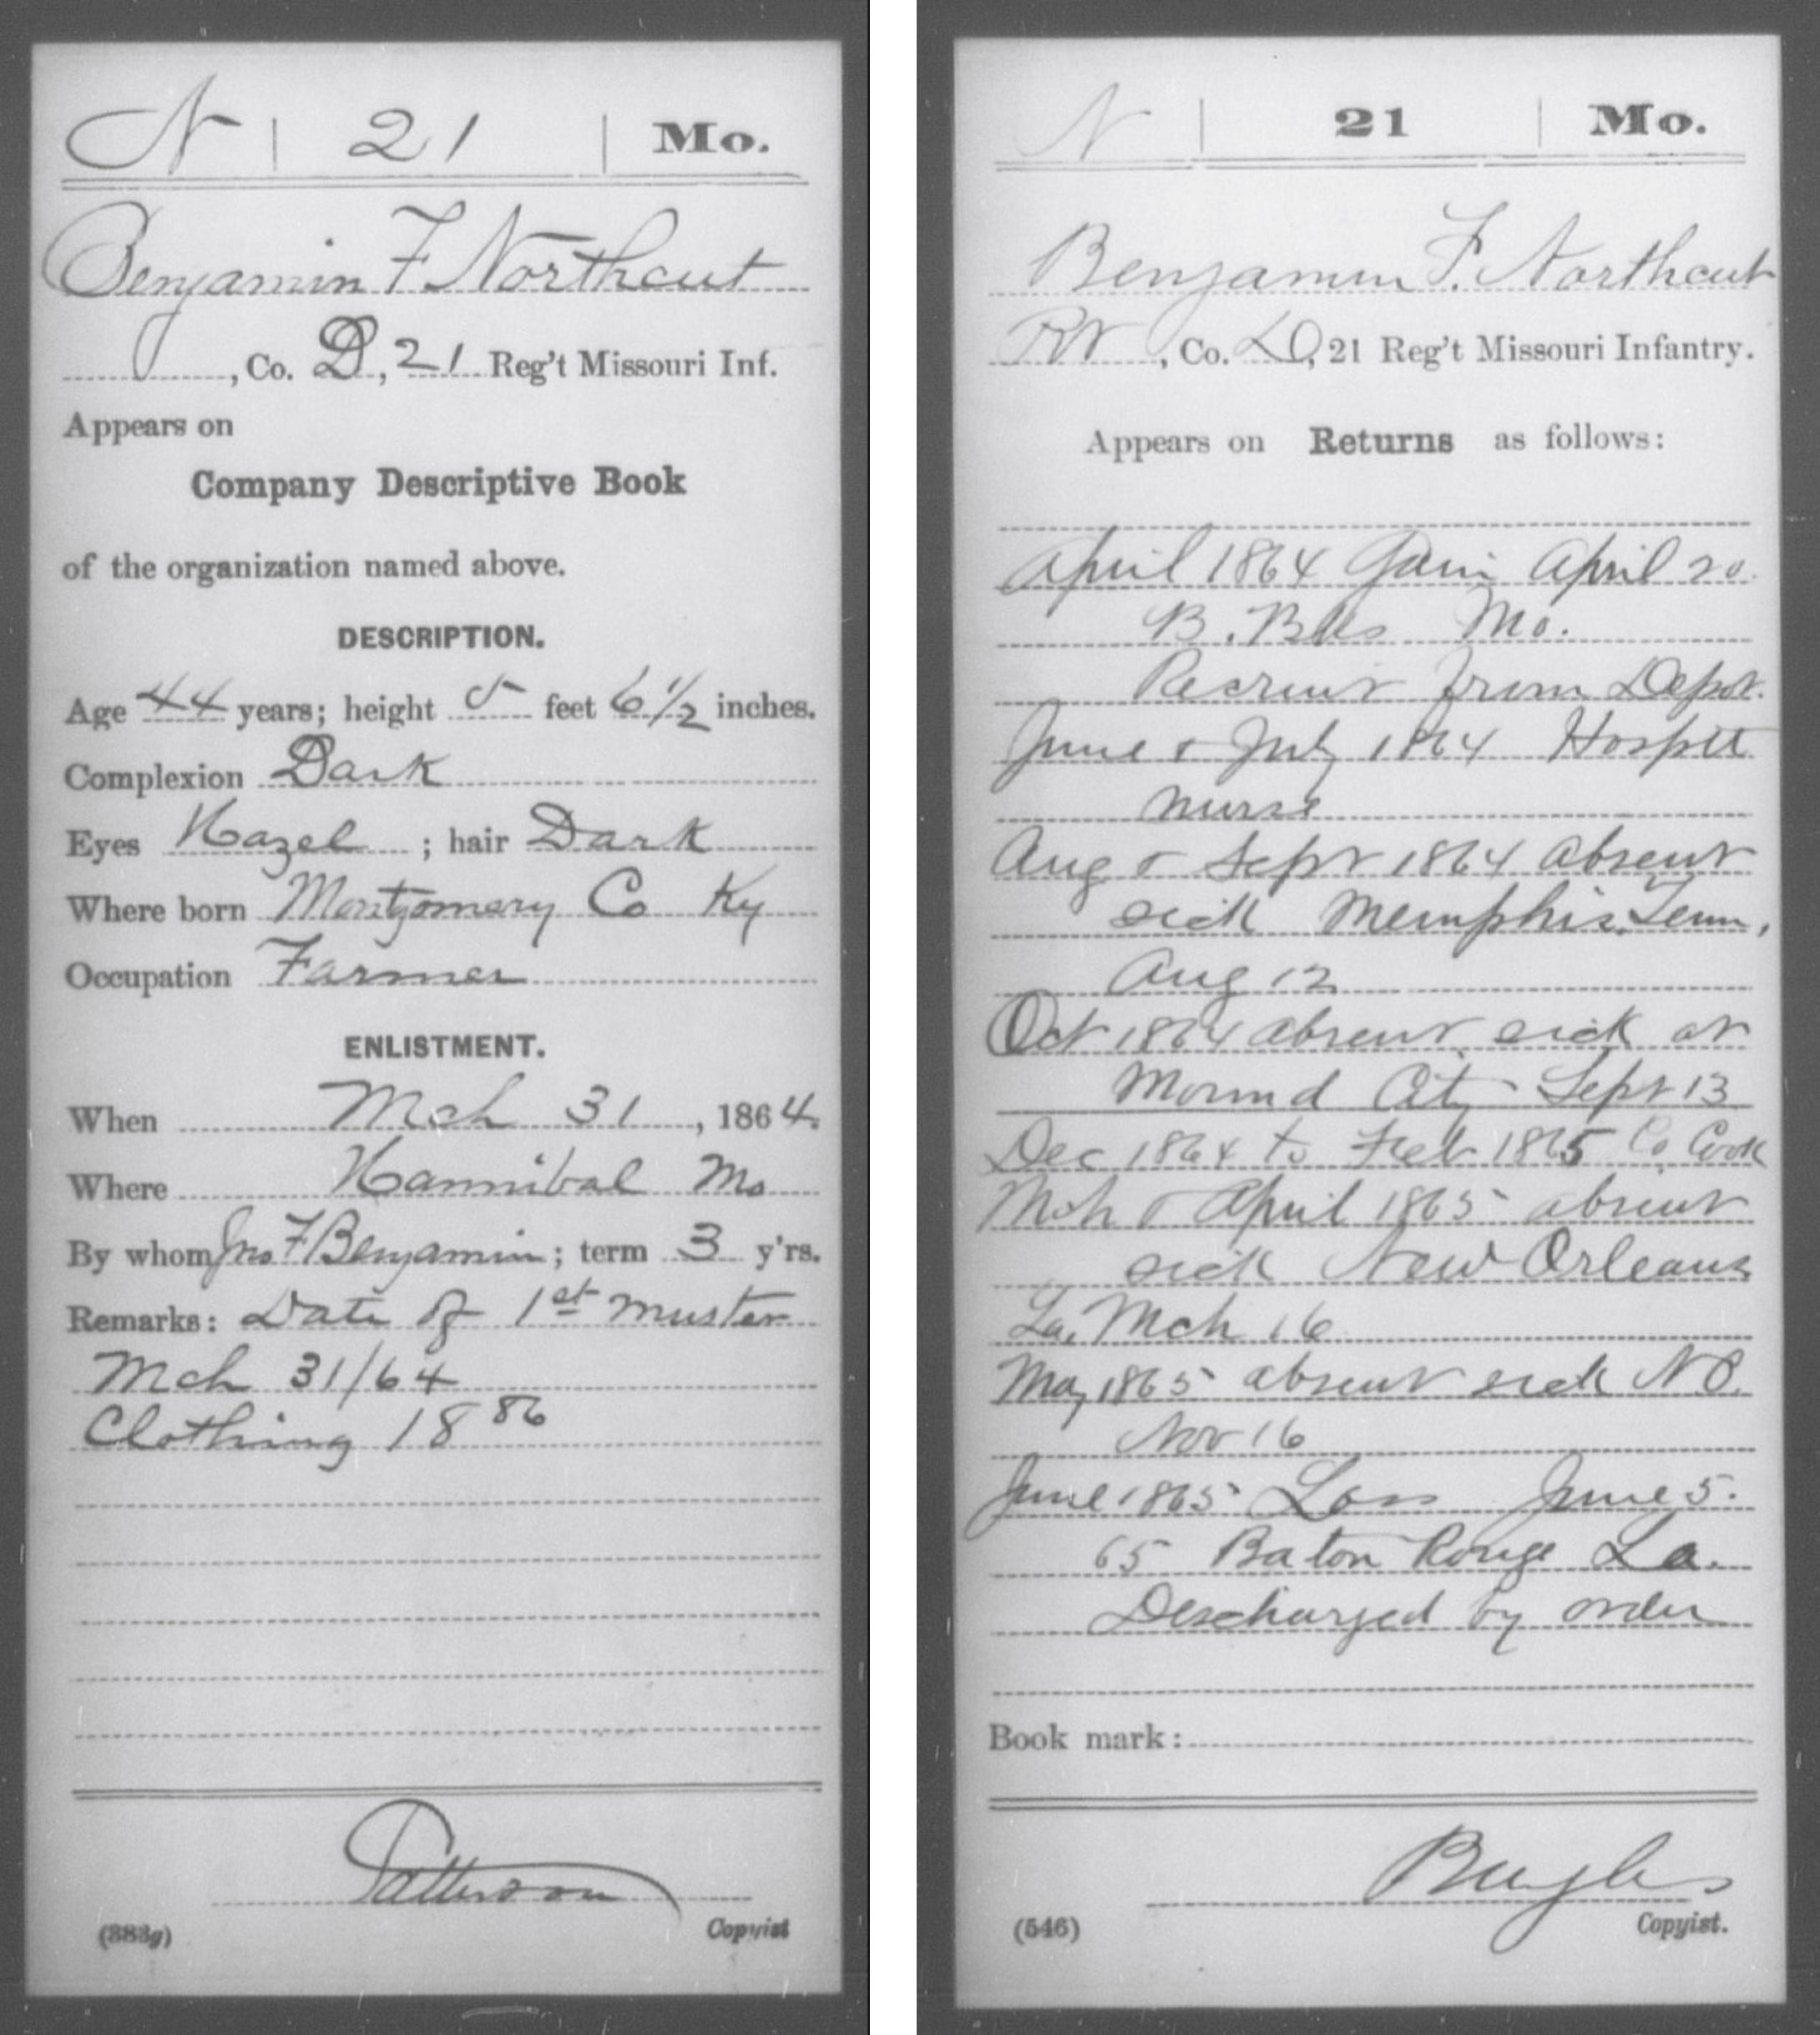 N | 21 | Mo.
Benjamin F Northcut
, Co. D, 21 Reg't Missouri Inf.
Appears on
Company Descriptive Book
of the organization named above.
DESCRIPTION.
Age 44 years; height 5 feet 6 1/2 inches.
Complexion Dark
Eyes Hazel ; hair Dark
Where born Montgomery Co Ky
Occupation Farmer
ENLISTMENT.
When Mch 31, 1864.
Where Hannibal Mo
By whom Jno F Benjamin; term 3 y'rs.
Remarks: Date of 1st muster
Mch 31/64
Clothing 18 86
Patterson
(383g) Copyist
N | 21 | Mo.
Benjamin F. Northcut
Pvt, Co. D, 21 Reg't Missouri Infantry.
Appears on Returns as follows:
April 1864 Gain April 20.
B. Bks Mo.
Recruit from Depot.
June & July 1864 Hospt
nurse
Aug & Sept 1864 absent
sick Memphis, Tenn,
Aug 12
Oct 1864 absent sick at
Mound City Sept 13
Dec 1864 to Feb 1865 Co. Cook
Mch & April 1865 absent
sick New Orleans
La. Mch 16
May 1865 absent sick N.O.
Nov 16
June 1865 Loss June 5.
65 Baton Rouge La.
Discharged by order
Book mark:
(546) Copyist.